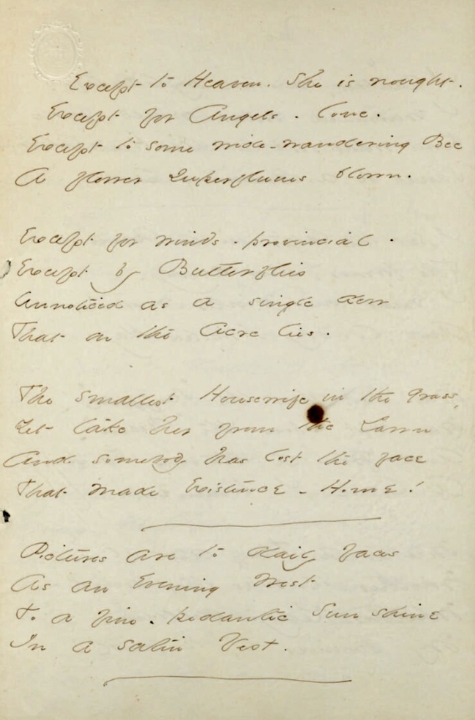 Except to Heaven. She is nought.
Except for Angels. lone.
Except to some wide-wandering Bee
A flower superfluous blown.
Except for winds. provincial.
Except by Butterflies
Unnoticed as a single dew
That on the Acre lies.
The smallest Housewife in the grass,
Yet take her from the Lawn
And somebody has lost the face
That made Existence - Home!
Pictures are to daily faces
As an Evening West
To a fine. pedantic Sunshine
In a satin Vest.